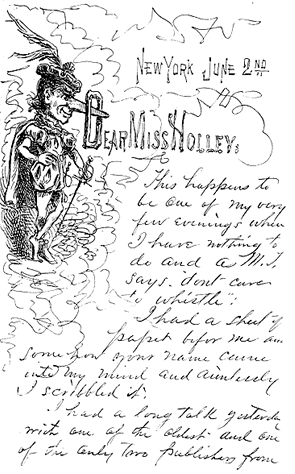 NEW YORK JUNE 2ND
DEAR MISS HOLLEY,
This happens to
be one of my very
few evenings when
I have nothing to
do and a M.T.
says "dont care
to whistle".
I had a sheet of
paper befor me an
some how your name came
into my mind and
I scribbled it.
I had a long talk yesterda
with one of the oldest and one
of the only two publishers from